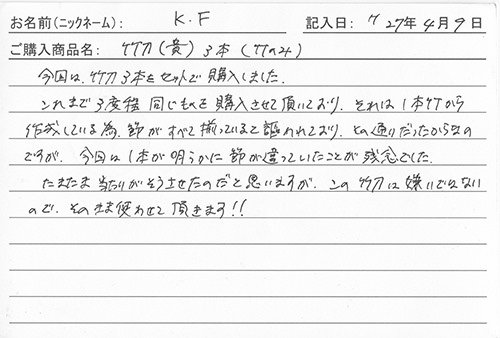 お名前(ニックネーム): K.F 記入日: H 27年 4月 9日
ご購入商品名: 竹刀(貴) 3本 (竹のみ)
今回は、竹刀3本をセットで購入しました。
これまで3度程 同じものを購入させて頂いており、それは1本竹から
作成している為、節がすべて揃っていると謳われており、その通りだったからなの
ですが、今回は1本が明らかに節が違っていたことが残念でした。
たまたま当たりがそうさせたのだと思いますが、この竹刀は嫌いではない
ので、そのまま使わせて頂きます!!